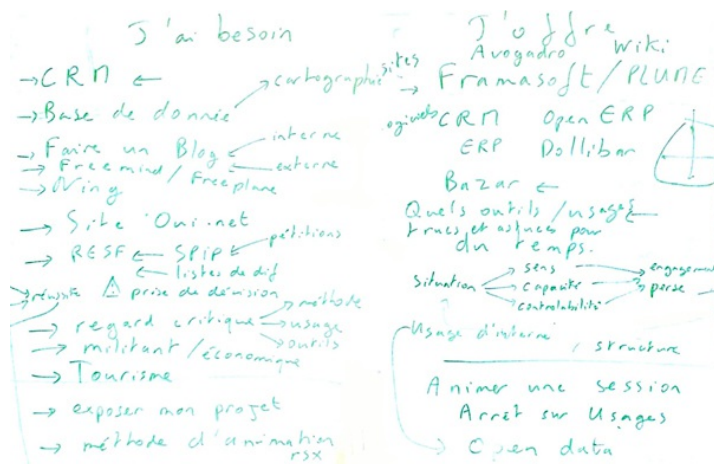 J'ai besoin
→ CRM ←
→ Base de donnée → cartographie
→ Faire un Blog ← interne
← externe
→ Freemind / Freeplane
→ Ning
→ Site Oui.net
→ RESF ← SPIP ← pétitions
← listes de dif
→ réussite ⚠ prise de décision
→ regard critique → méthode
→ usage
→ outils
→ militant / économique
→ Tourisme
→ exposer mon projet
→ méthode d'animation
rsx
J'offre
Avogadro Wiki
sites → Framasoft / PLUME
logiciels CRM Open ERP
ERP Dollibar
Bazar ←
Quels outils / usages ←
trucs et astuces pour
du temps.
situation → sens → engagement
→ capacité → perse
→ controlabilité
Usage d'interne
/ structure
Animer une session
Arrêt sur Usages
→ Open data